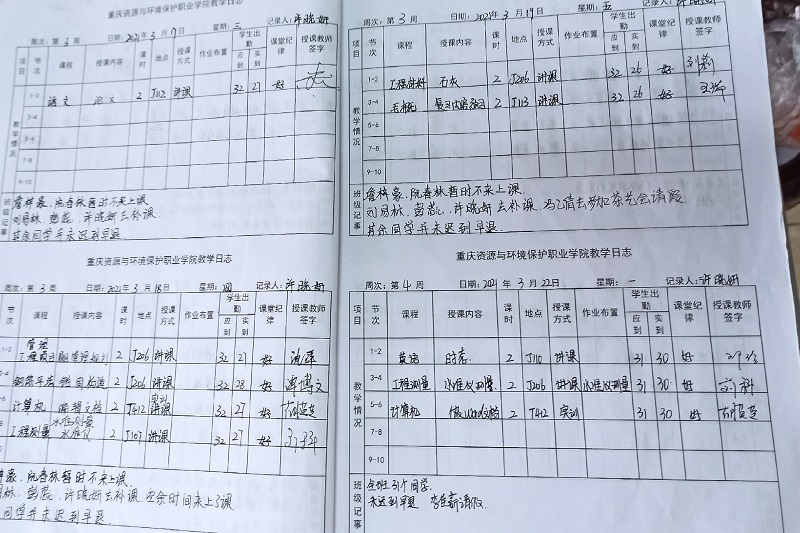 重庆资源与环境保护职业学院教学日志
周次：第 3 周 日期：2021年 3 月 17日 星期：三 记录人：许晓妍
项目 节次 课程 授课内容 课时 地点 授课方式 作业布置 学生出勤 应到 实到 课堂纪律 授课教师签字
教学情况
1-2 语文 2 J112 讲课 32 27 好
3-4
5-6
7-8
9-10
班级记事
詹梓豪、阮春林暂时不来上课
刘易林、许晓妍去补课.
其余同学并未迟到早退
周次：第 3 周 日期：2021年 3 月 19日 星期：五 记录人：许晓妍
项目 节次 课程 授课内容 课时 地点 授课方式 作业布置 学生出勤 应到 实到 课堂纪律 授课教师签字
教学情况
1-2 工程材料 石灰 2 J206 讲课 32 26 好
3-4 复习内容 2 J113 讲课 32 26 好
5-6
7-8
9-10
班级记事
詹梓豪、阮春林暂时不来上课
刘易林、许晓妍去补课. 去参加茶艺会请假
其余同学并未迟到早退.
重庆资源与环境保护职业学院教学日志
周次：第 3 周 日期：2021年 3 月 18日 星期：四 记录人：许晓妍
节次 课程 授课内容 课时 地点 授课方式 作业布置 学生出勤 应到 实到 课堂纪律 授课教师签字
1-2 工程项目管理 2 J206 讲课 32 27 好
3-4 2 J206 讲课 32 28 好
5-6 计算机 2 J412 讲课 实训 32 27 好
工程测量 水准测量 水准仪 2 J107 讲课 32 27 好
豪、阮春林暂时不来上课.
林、许晓妍去补课. 时间来上了课
同学并未迟到早退
重庆资源与环境保护职业学院教学日志
周次：第 4 周 日期：2021 年 3 月 22日 星期：一 记录人：许晓妍
项目 节次 课程 授课内容 课时 地点 授课方式 作业布置 学生出勤 应到 实到 课堂纪律 授课教师签字
教学情况
1-2 英语 时态 2 J110 讲课 31 30 好
3-4 工程测量 水准仪测量 2 J206 讲课 水准仪测量 31 30 好
5-6 计算机 做word文档 2 J412 实训 31 30 好
7-8
9-10
班级记事
全班31个同学.
未迟到早退 请假.